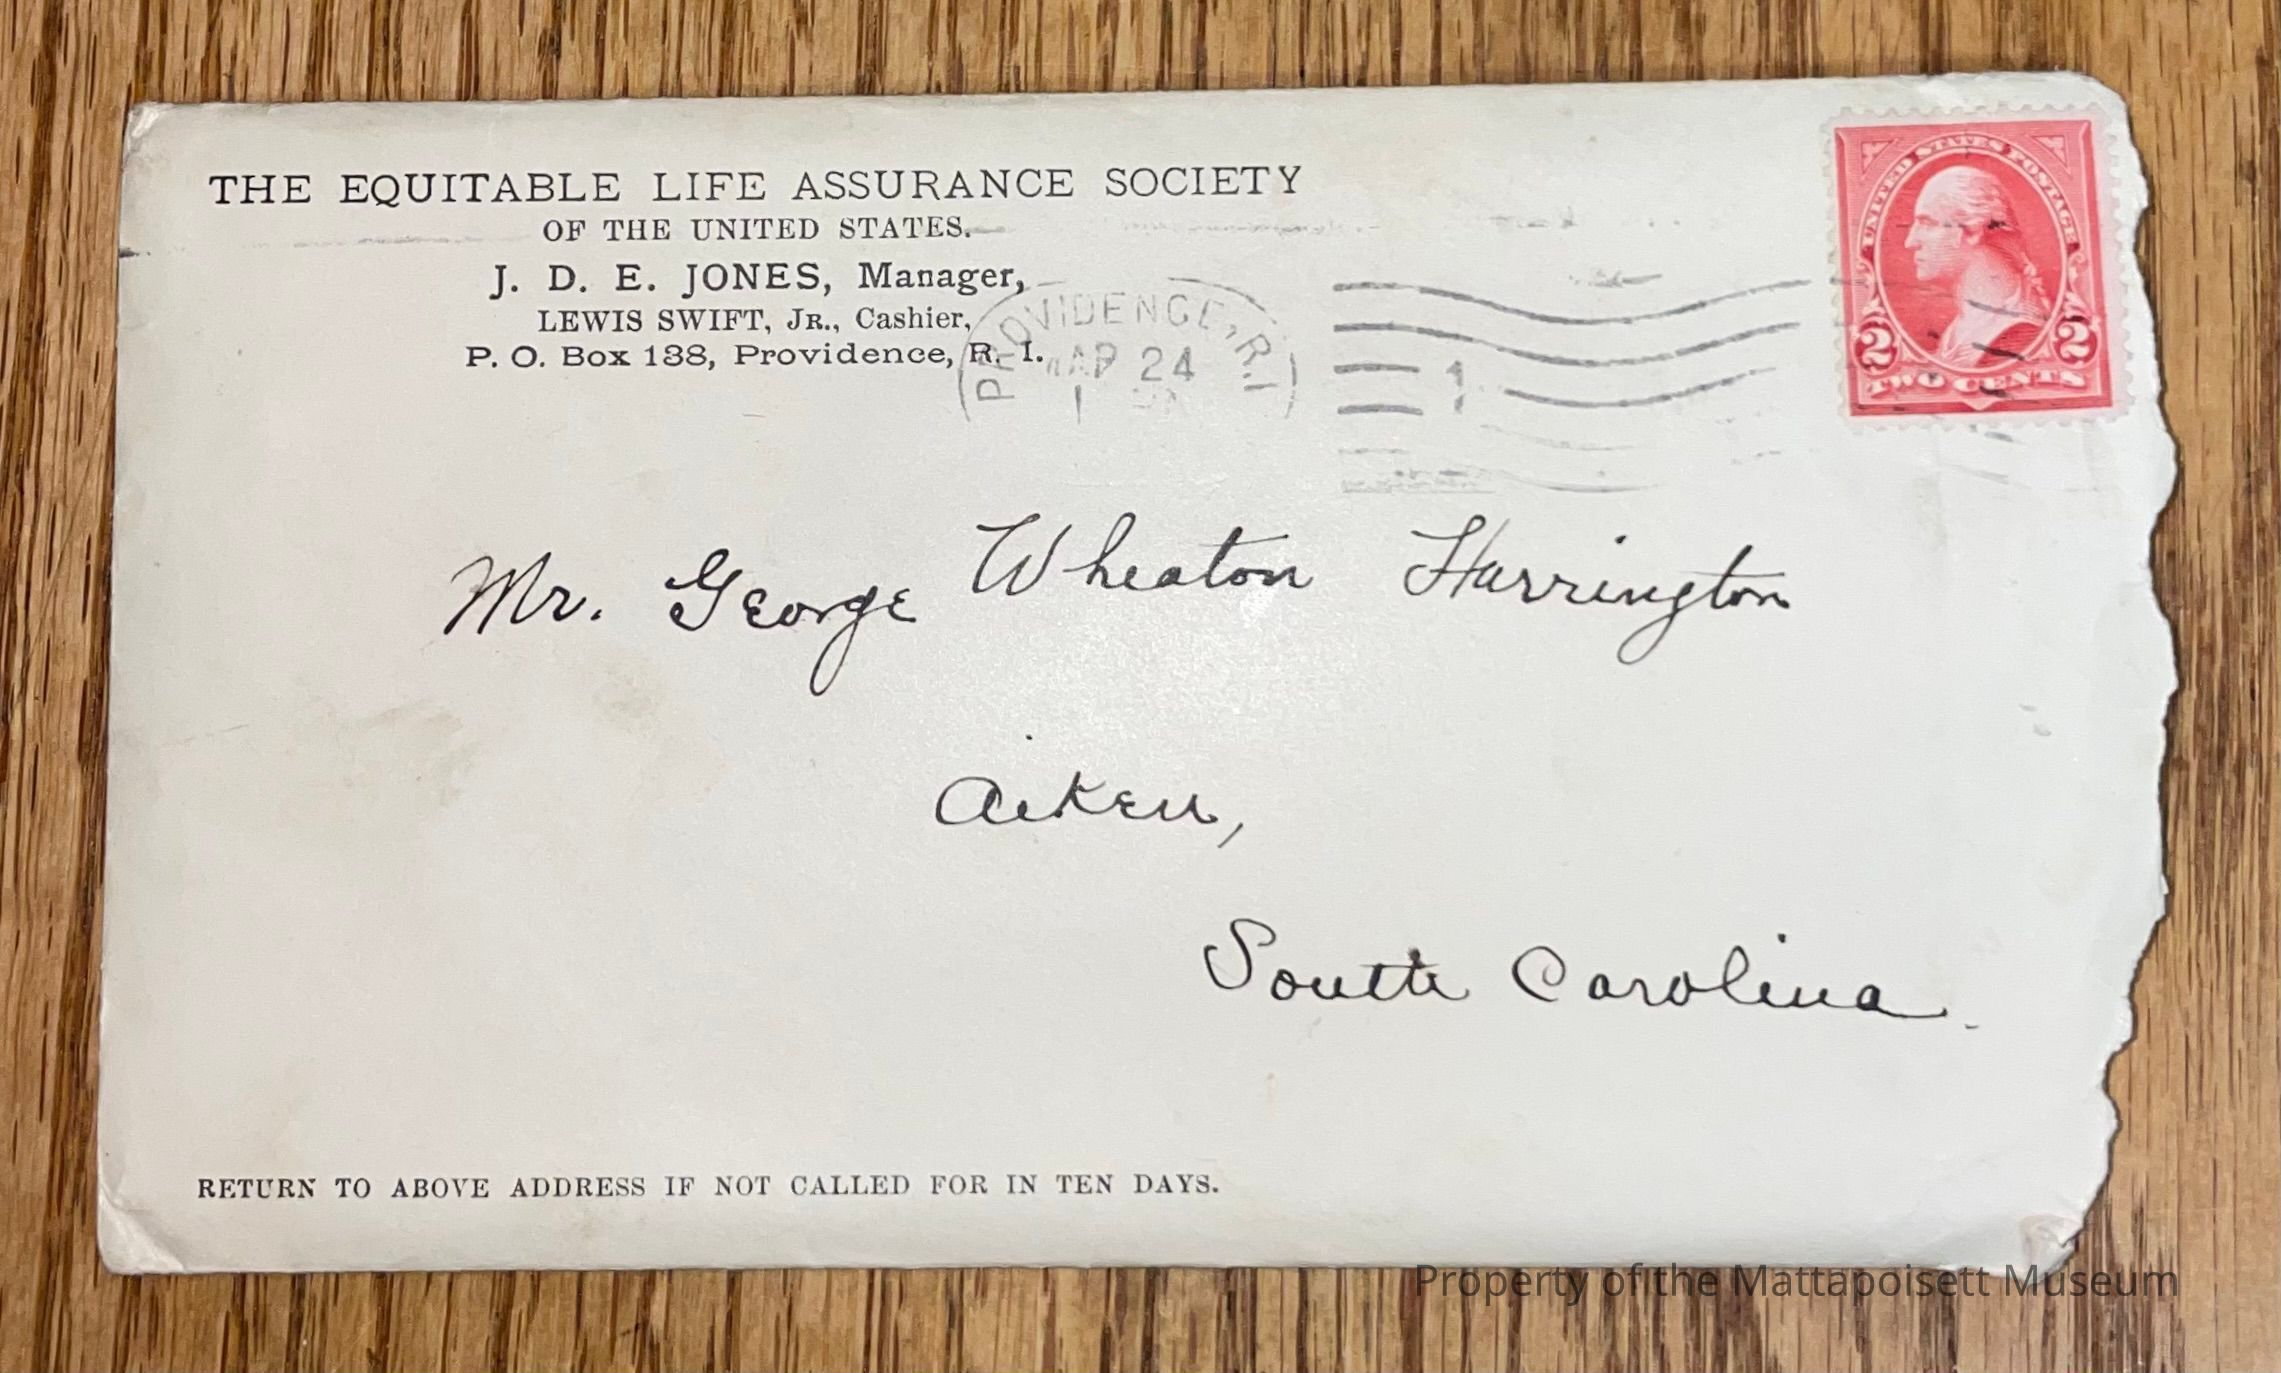 THE EQUITABLE LIFE ASSURANCE SOCIETY
OF THE UNITED STATES.
J. D. E. JONES, Manager,
LEWIS SWIFT, JR., Cashier,
P. O. Box 138, Providence, R. I.
PROVIDENCE, R.I.
MAR 24
1
UNITED STATES POSTAGE
2 2
TWO CENTS
Mr. George Wheaton Harrington
Aiken,
South Carolina.
RETURN TO ABOVE ADDRESS IF NOT CALLED FOR IN TEN DAYS.
Property of the Mattapoisett Museum